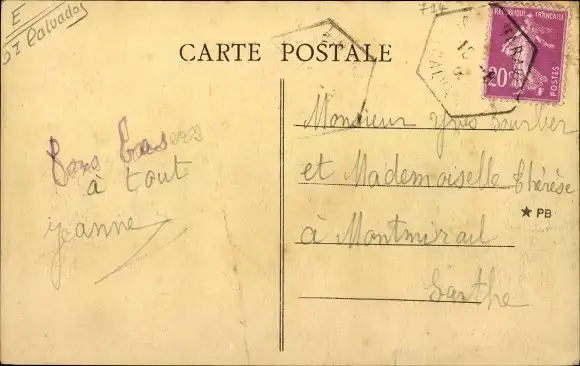 E
St Calvados
714
CARTE POSTALE
RÉPUBLIQUE FRANÇAISE
20c
POSTES
CALVADOS
Bons Baisers
à tout
Jeanne
Monsieur Yves
et Mademoiselle Thérèse
★ PB
à Montmirail
Sarthe